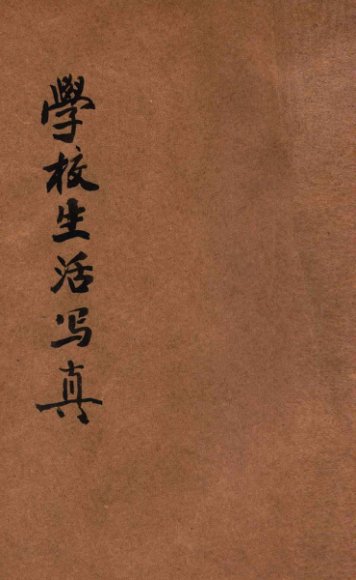 學校生活写真